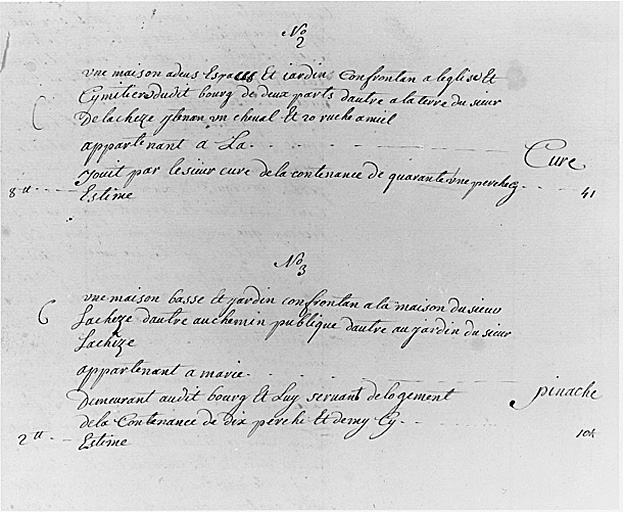 No
2
une maison a deus Espaces Et iardin Confrontan a leglise Et
Cymitiere dudit bourg de deux parts dautre a la terre du sieur
De lacheze ybenan un cheval Et 20 ruche a miel
appartenant a La Cure
Jouit par le sieur cure de la contenance de quarante une perche 41
8 tt Estime
No
3
une maison basse et jardin confrontan a la maison du sieur
Lacheze dautre au chemin publique dautre au jardin du sieur
Lachize
appartenant a marie pinache
Demeurant audit bourg Et Luy servant de logement
de la Contenance de dix perche Et demy Cy
2 tt Estime